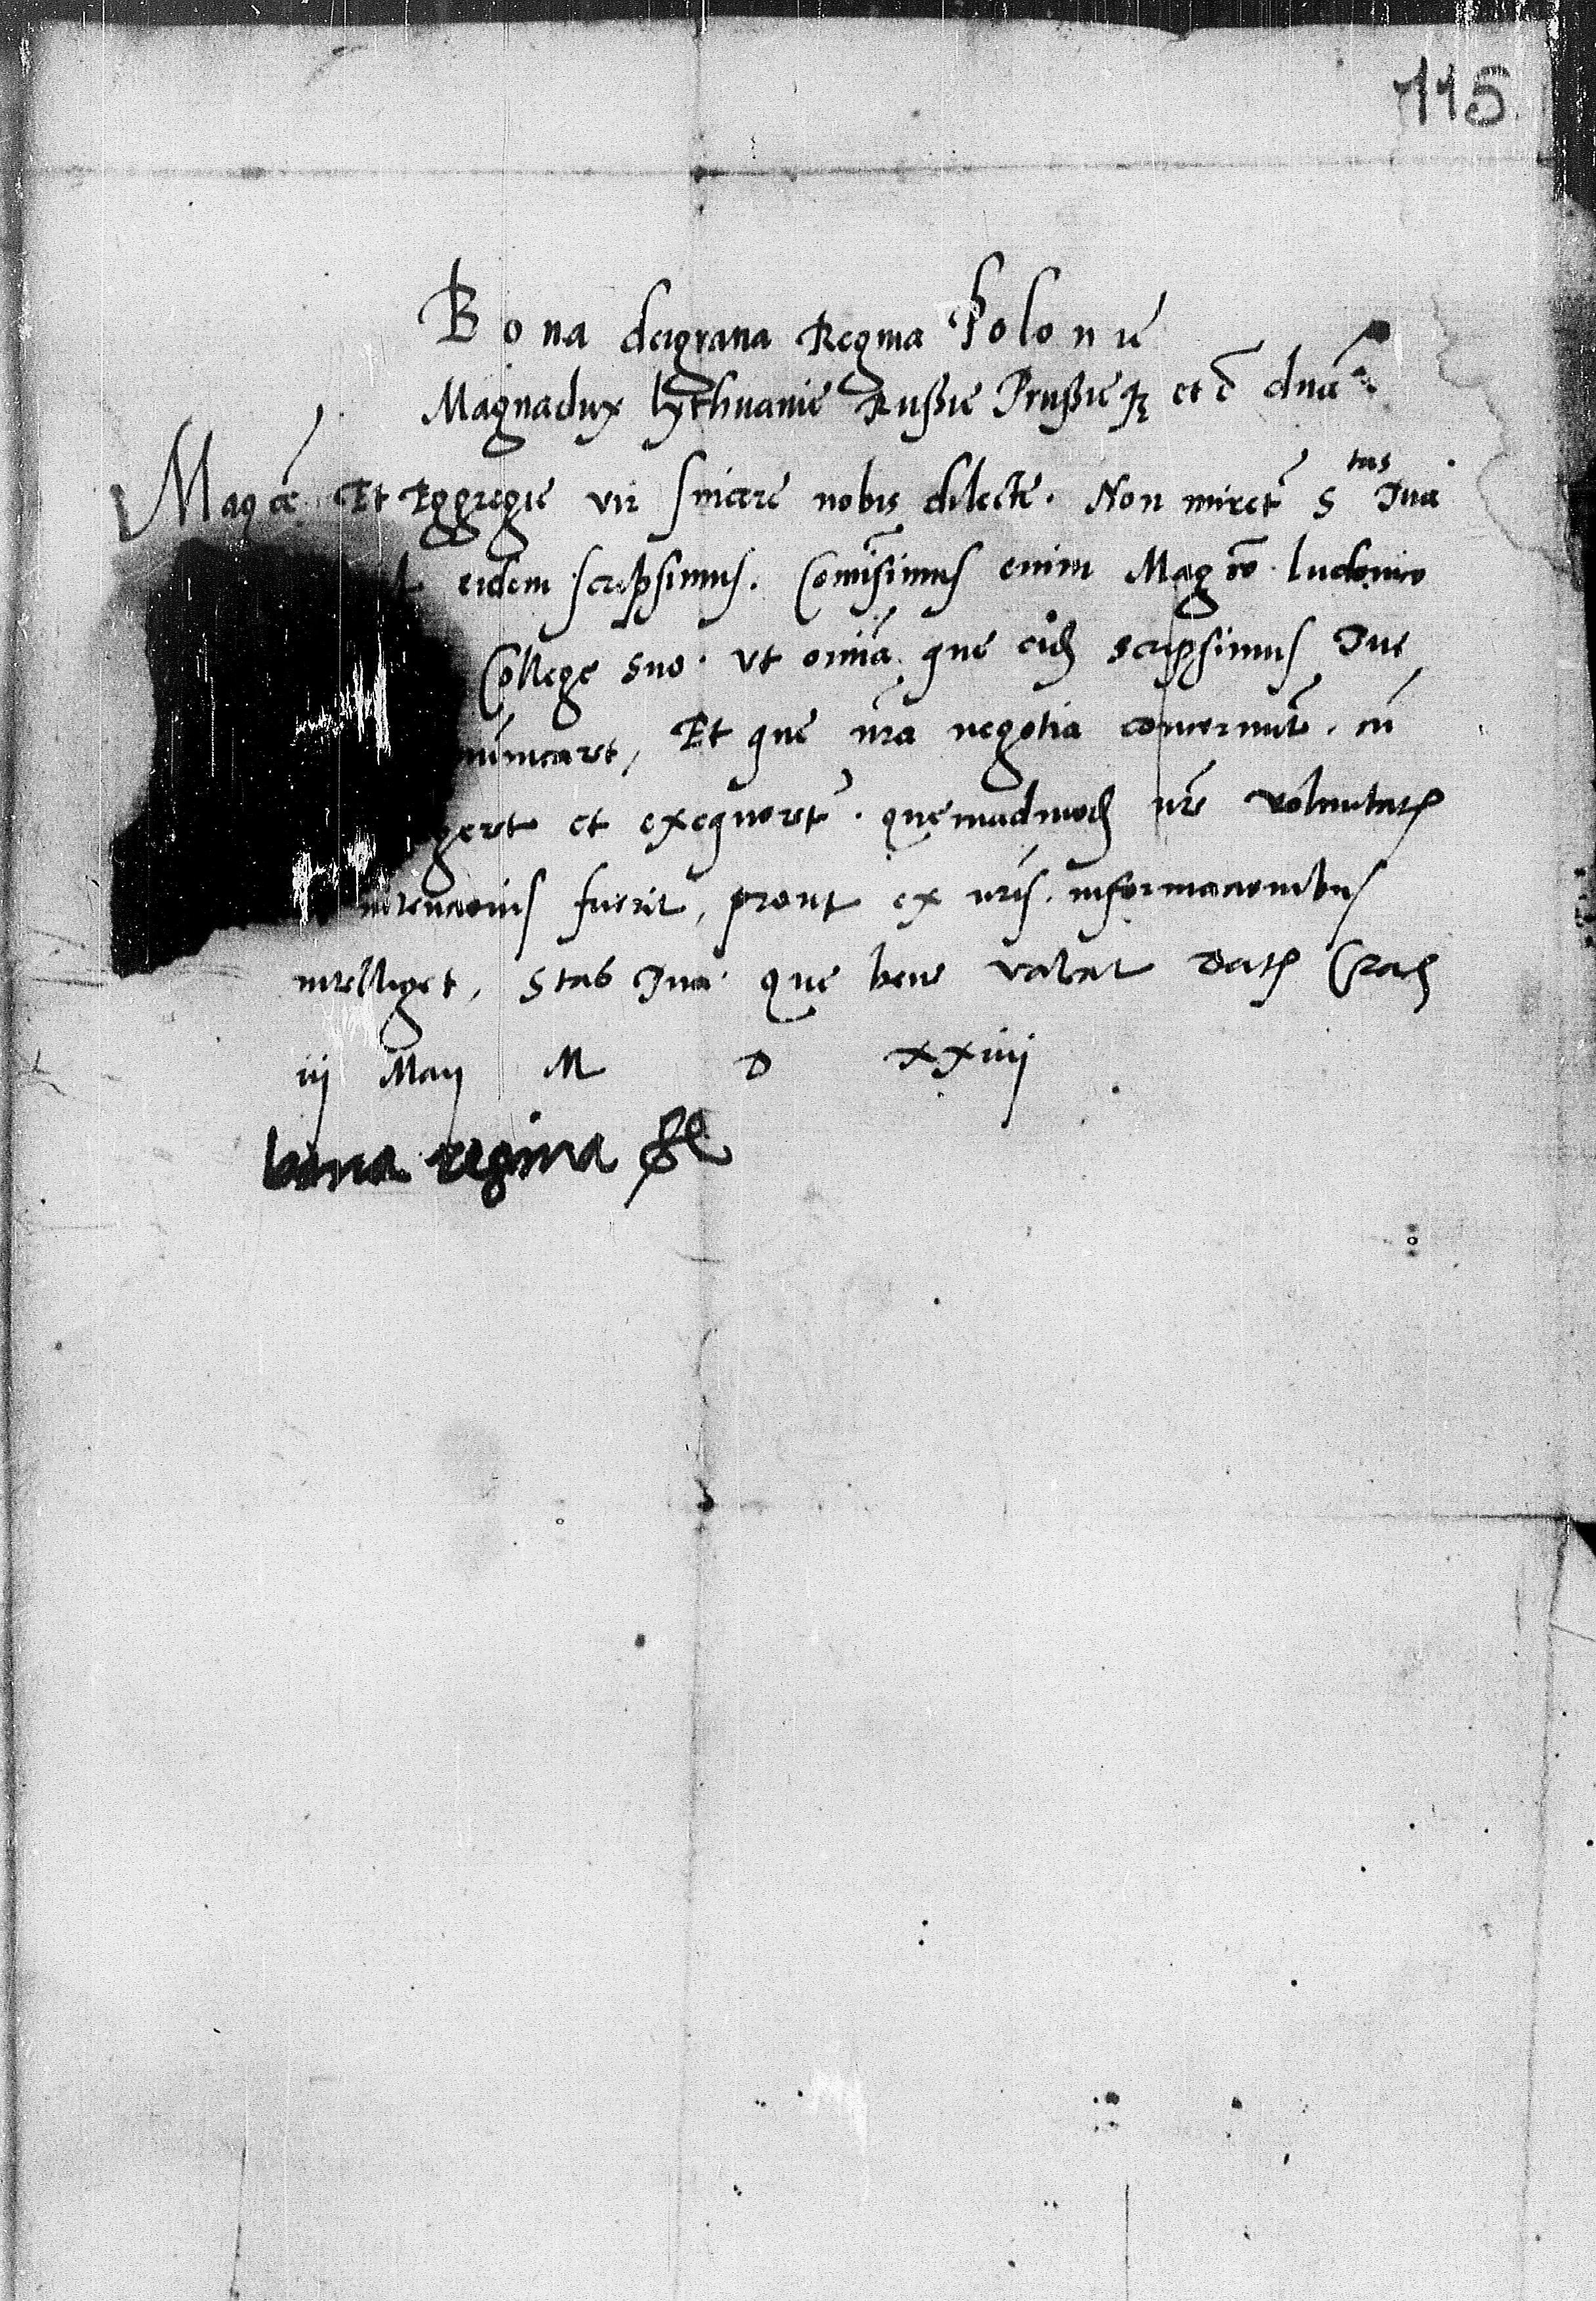 115
Bona dei gratia Regina Polonie
Magna dux lythuanie Russie Prussieq et c dna
Magce Et Eggregie vir sincere nobis dilecte. Non miret S tas Tua
eidem scripsimus. Comisimus enim Mag co ludovico
College suo. Vt omia que eid scripsimus Tue
nicaret, Et que nra negotia concernunt. cu
geret et exequeret. quemadmod nre voluntat
intencionis fuerit, prout ex nris informacionibus
intelliget, S tas Tua que bene valeat dat Crac
iij Maij M D XXiiij
bona regina